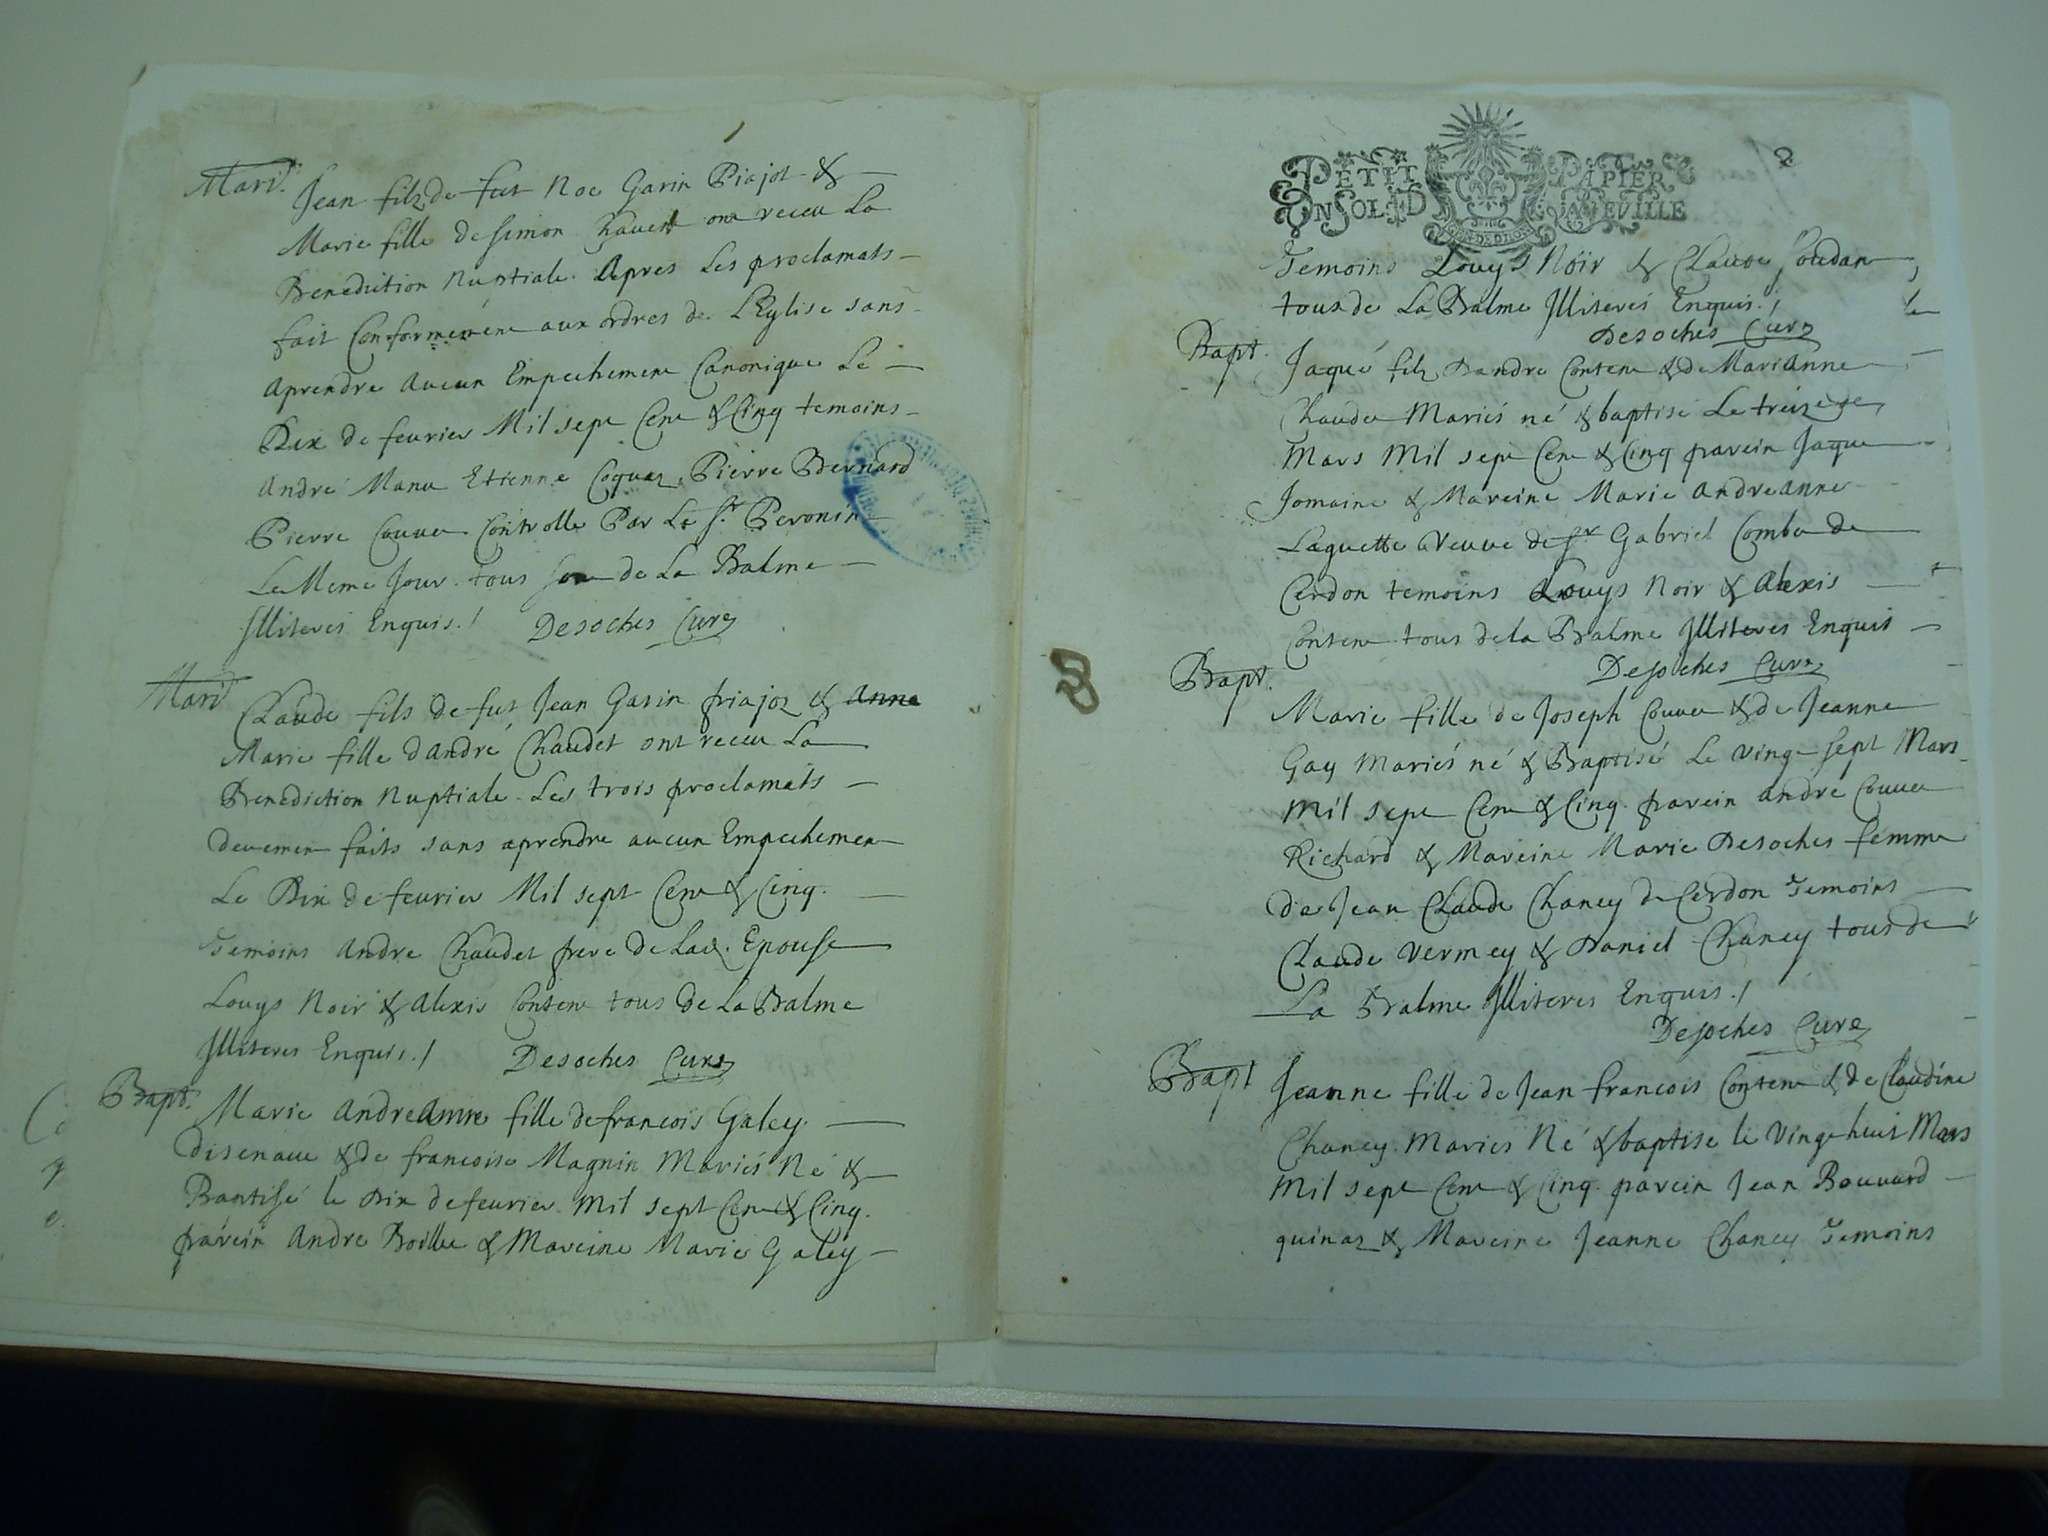 1
Mari.
Jean fils de fut Noe Garin Piajot &
Marie fille de Simon Chauest ont receu La
Benediction Nuptiale. Apres Les proclamats
fait Conformement aux ordres de L'Eglise sans
aprendre Aucun Empechement Canonique Le
Dix de feurier Mil sept Cent & Cinq temoins
André Manu Etienne Coquaz Pierre Bernard
Pierre Couue Controlle Par Le Sr. Peronin
Le Meme Jour. tous de La Balme
Illiteres Enquis./ Desoches Cure
Mari
Claude fils de fut Jean Garin piajoz & Anne
Marie fille d'André Chaudet ont receu La
Benediction Nuptiale. Les trois proclamats
deuement faits sans aprendre aucun Empechement
Le Dix de feurier Mil sept Cent & Cinq.
Temoins Andre Chaudet frere de Lad. Epouse
Louys Noir & Alexis Contene tous de La Balme
Illiteres Enquis./ Desoches Cure
Bapt.
Marie Andreanne fille de francois Galey.
disenaue & de francoise Magnin Mariés Né &
Baptisé le Dix de feurier Mil sept Cent & Cinq.
parein Andre Boillu & Mareine Marie Galey
2
PETIT PAPIER
UN SOL LA FEVILLE
Temoins Louys Noir & Claude Joudan
tous de La Balme Illiterés Enquis./
Desoches Cure
Bapt.
Jaque fils Dandre Contene & de Marianne
Chaudet Mariés né & baptisé Le treize
Mars Mil sept Cent & Cinq parein Jaque
Jomaine & Mareine Marie Andreanne
Laguette Veuue de Sr Gabriel Combe de
Cerdon temoins Louys Noir & Alexis
Contene tous de la Balme Illiteres Enquis
Desoches Cure
Bapt.
Marie fille de Joseph Couue & de Jeanne
Gay Mariés né & Baptisé Le Vingt sept Mars
Mil sept Cent & Cinq. parein Andre Couue
Richard & Mareine Marie Desoches femme
de Jean Claude Chaney de Cerdon Temoins
Claude Vermey & Daniel Chaney tous de
La Balme Illiteres Enquis./
Desoches Cure
Bapt
Jeanne fille de Jean francois Contene & de Claudine
Chaney. Maries Né & baptise le Vingt huit Mars
Mil sept Cent & Cinq. parein Jean Bouuard
quinaz & Mareine Jeanne Chaney Temoins